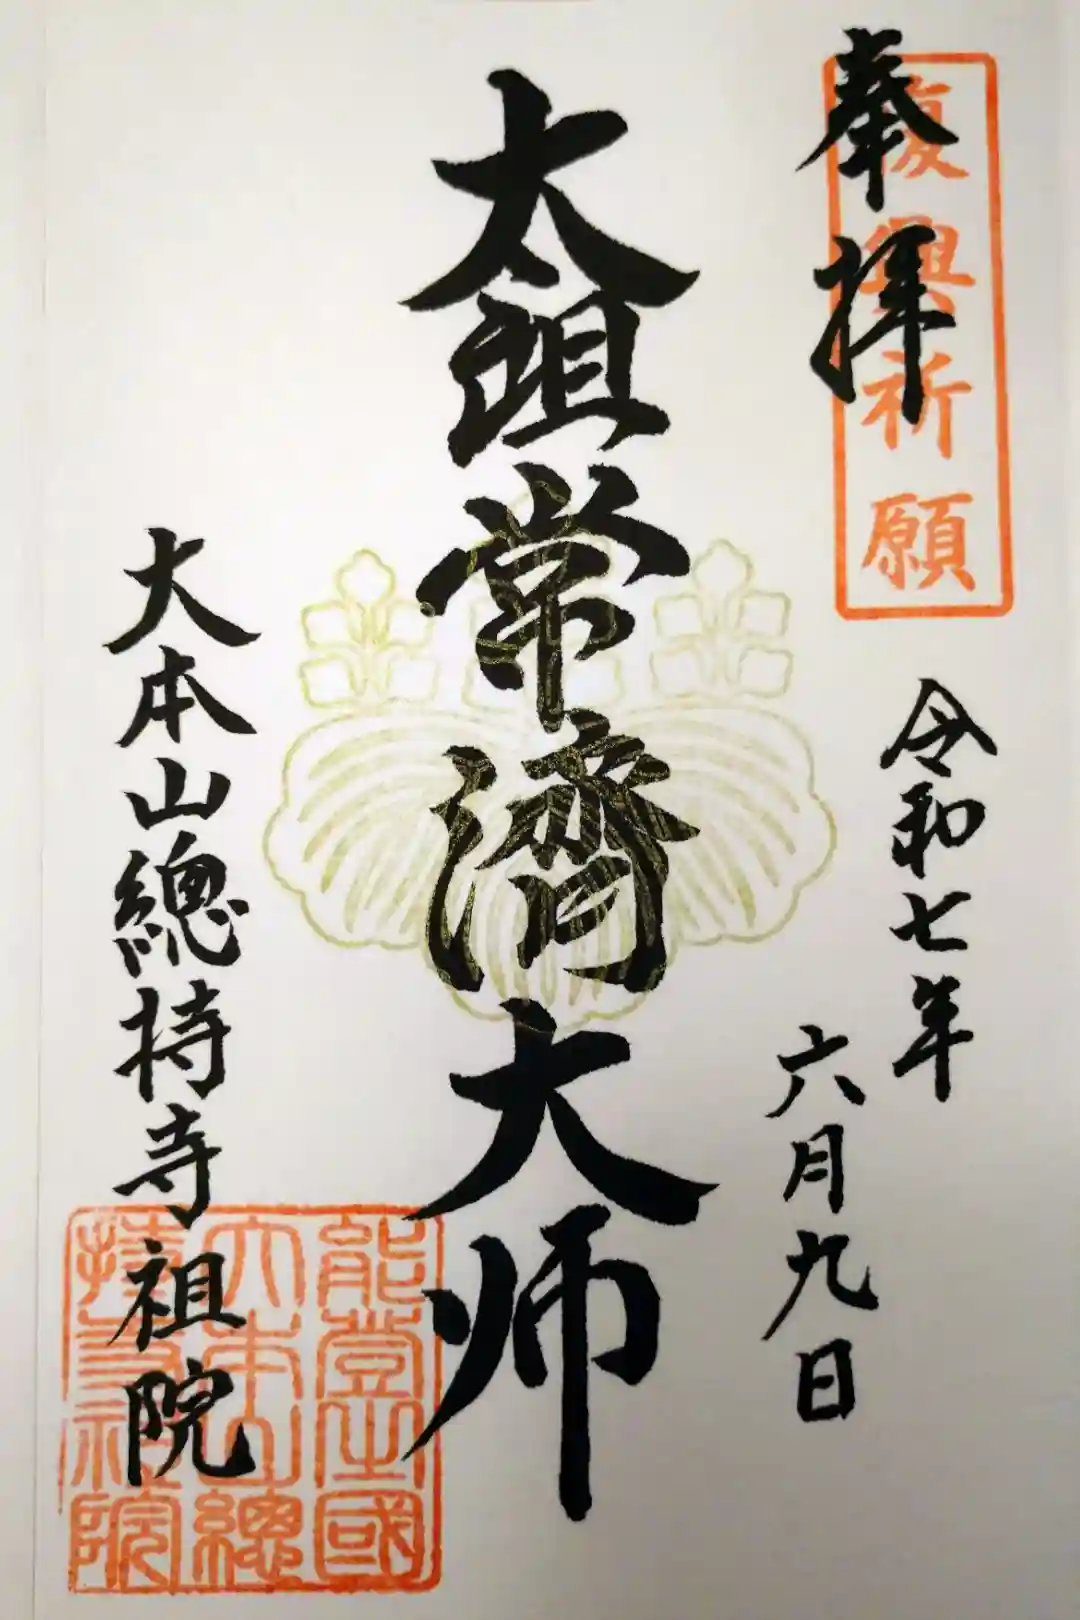 奉拝
復興祈願
令和七年
六月九日
太祖常濟大师
大本山總持寺祖院
能登之國
大本山總
持寺祖院